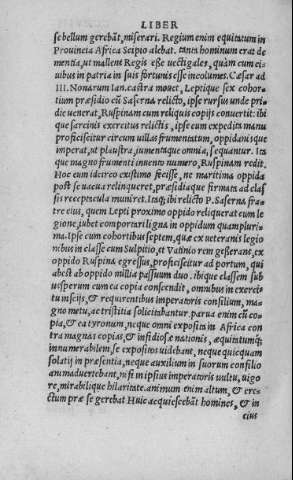 LIBER
se bellum gerebāt, miserari. Regium enim equitatum in
Prouincia Africa Scipio alebat. tātaq; hominum erat de
mentia, ut mallent Regis esse uectigales, quàm cum ci
uibus in patria in suis fortunis esse incolumes. Cæsar ad
III. Nonarum Ian. castra mouet, Leptique sex cohor
tium præsidio cū Saserna relicto, ipse rursus unde pri
die uenerat, Ruspinam cum reliquis copijs conuertit: ibi
que sarcinis exercitus relictis, ipse cum expedita manu
proficiscitur circum uillas frumentatum, oppidanisque
imperat, ut plaustra, iumentaque omnia, sequantur. Ita
que magno frumenti inuento numero, Ruspinam redit.
Hoc eum idcirco existimo fecisse, ne maritima oppida
post se uacua relinqueret, præsidiaque firmata ad clas
sis receptacula muniret. Itaq; ibi relicto P. Saserna fra
tre eius, quem Lepti proximo oppido reliquerat cum le
gione, iubet comportari ligna in oppidum quamplurí
ma. Ipse cum cohortibus septem, quæ ex ueteranis legio
nibus in classe cum Sulpitio, et Vatinio rem gesserant, ex
oppido Ruspina egressus, proficiscitur ad portum, qui
abest ab oppido millia passuum duo. ibique classem sub
uesperum cum ea copia conscendit, omnibus in exerci
tu inscijs, & requirentibus imperatoris consilium, ma
gno metu, ac tristitia solicitabantur. parua enim cū co
pia, & ea tyronum, neque omni exposita in Africa con
tra magnas copias, & insidiosæ nationis, equitatumq;
innumerabilem se expositos uidebant, neque quicquam
solatij in præsentia, neque auxilium in suorum consilio
animaduertebant, nisi in ipsius imperatoris uultu, uigo
re, mirabilique hilaritate. animum enim altum, & ere-
ctum præ se gerebat Huic acquiescebāt homines, & in
eius